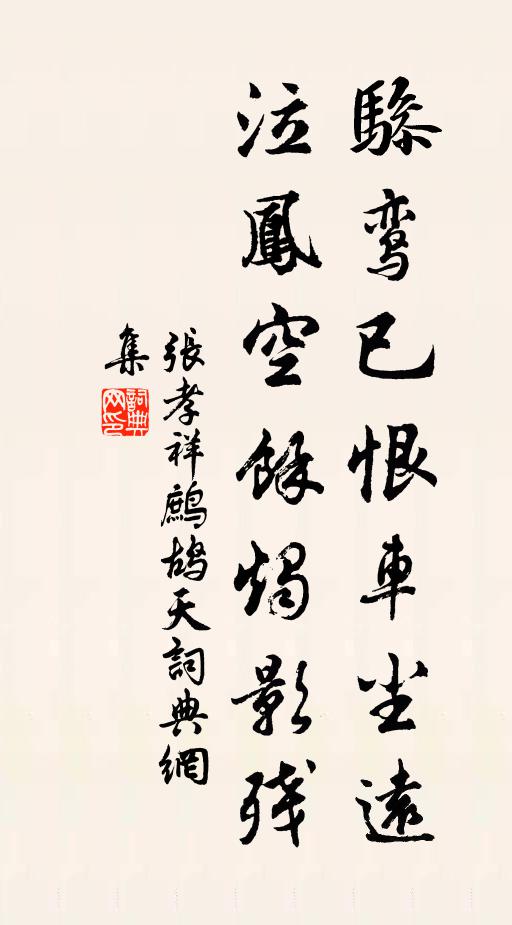 驂鸾已恨車尘遠
泣鳳空餘燭影残
張孝祥鷓鴣天詞典網
集
詞典
网印